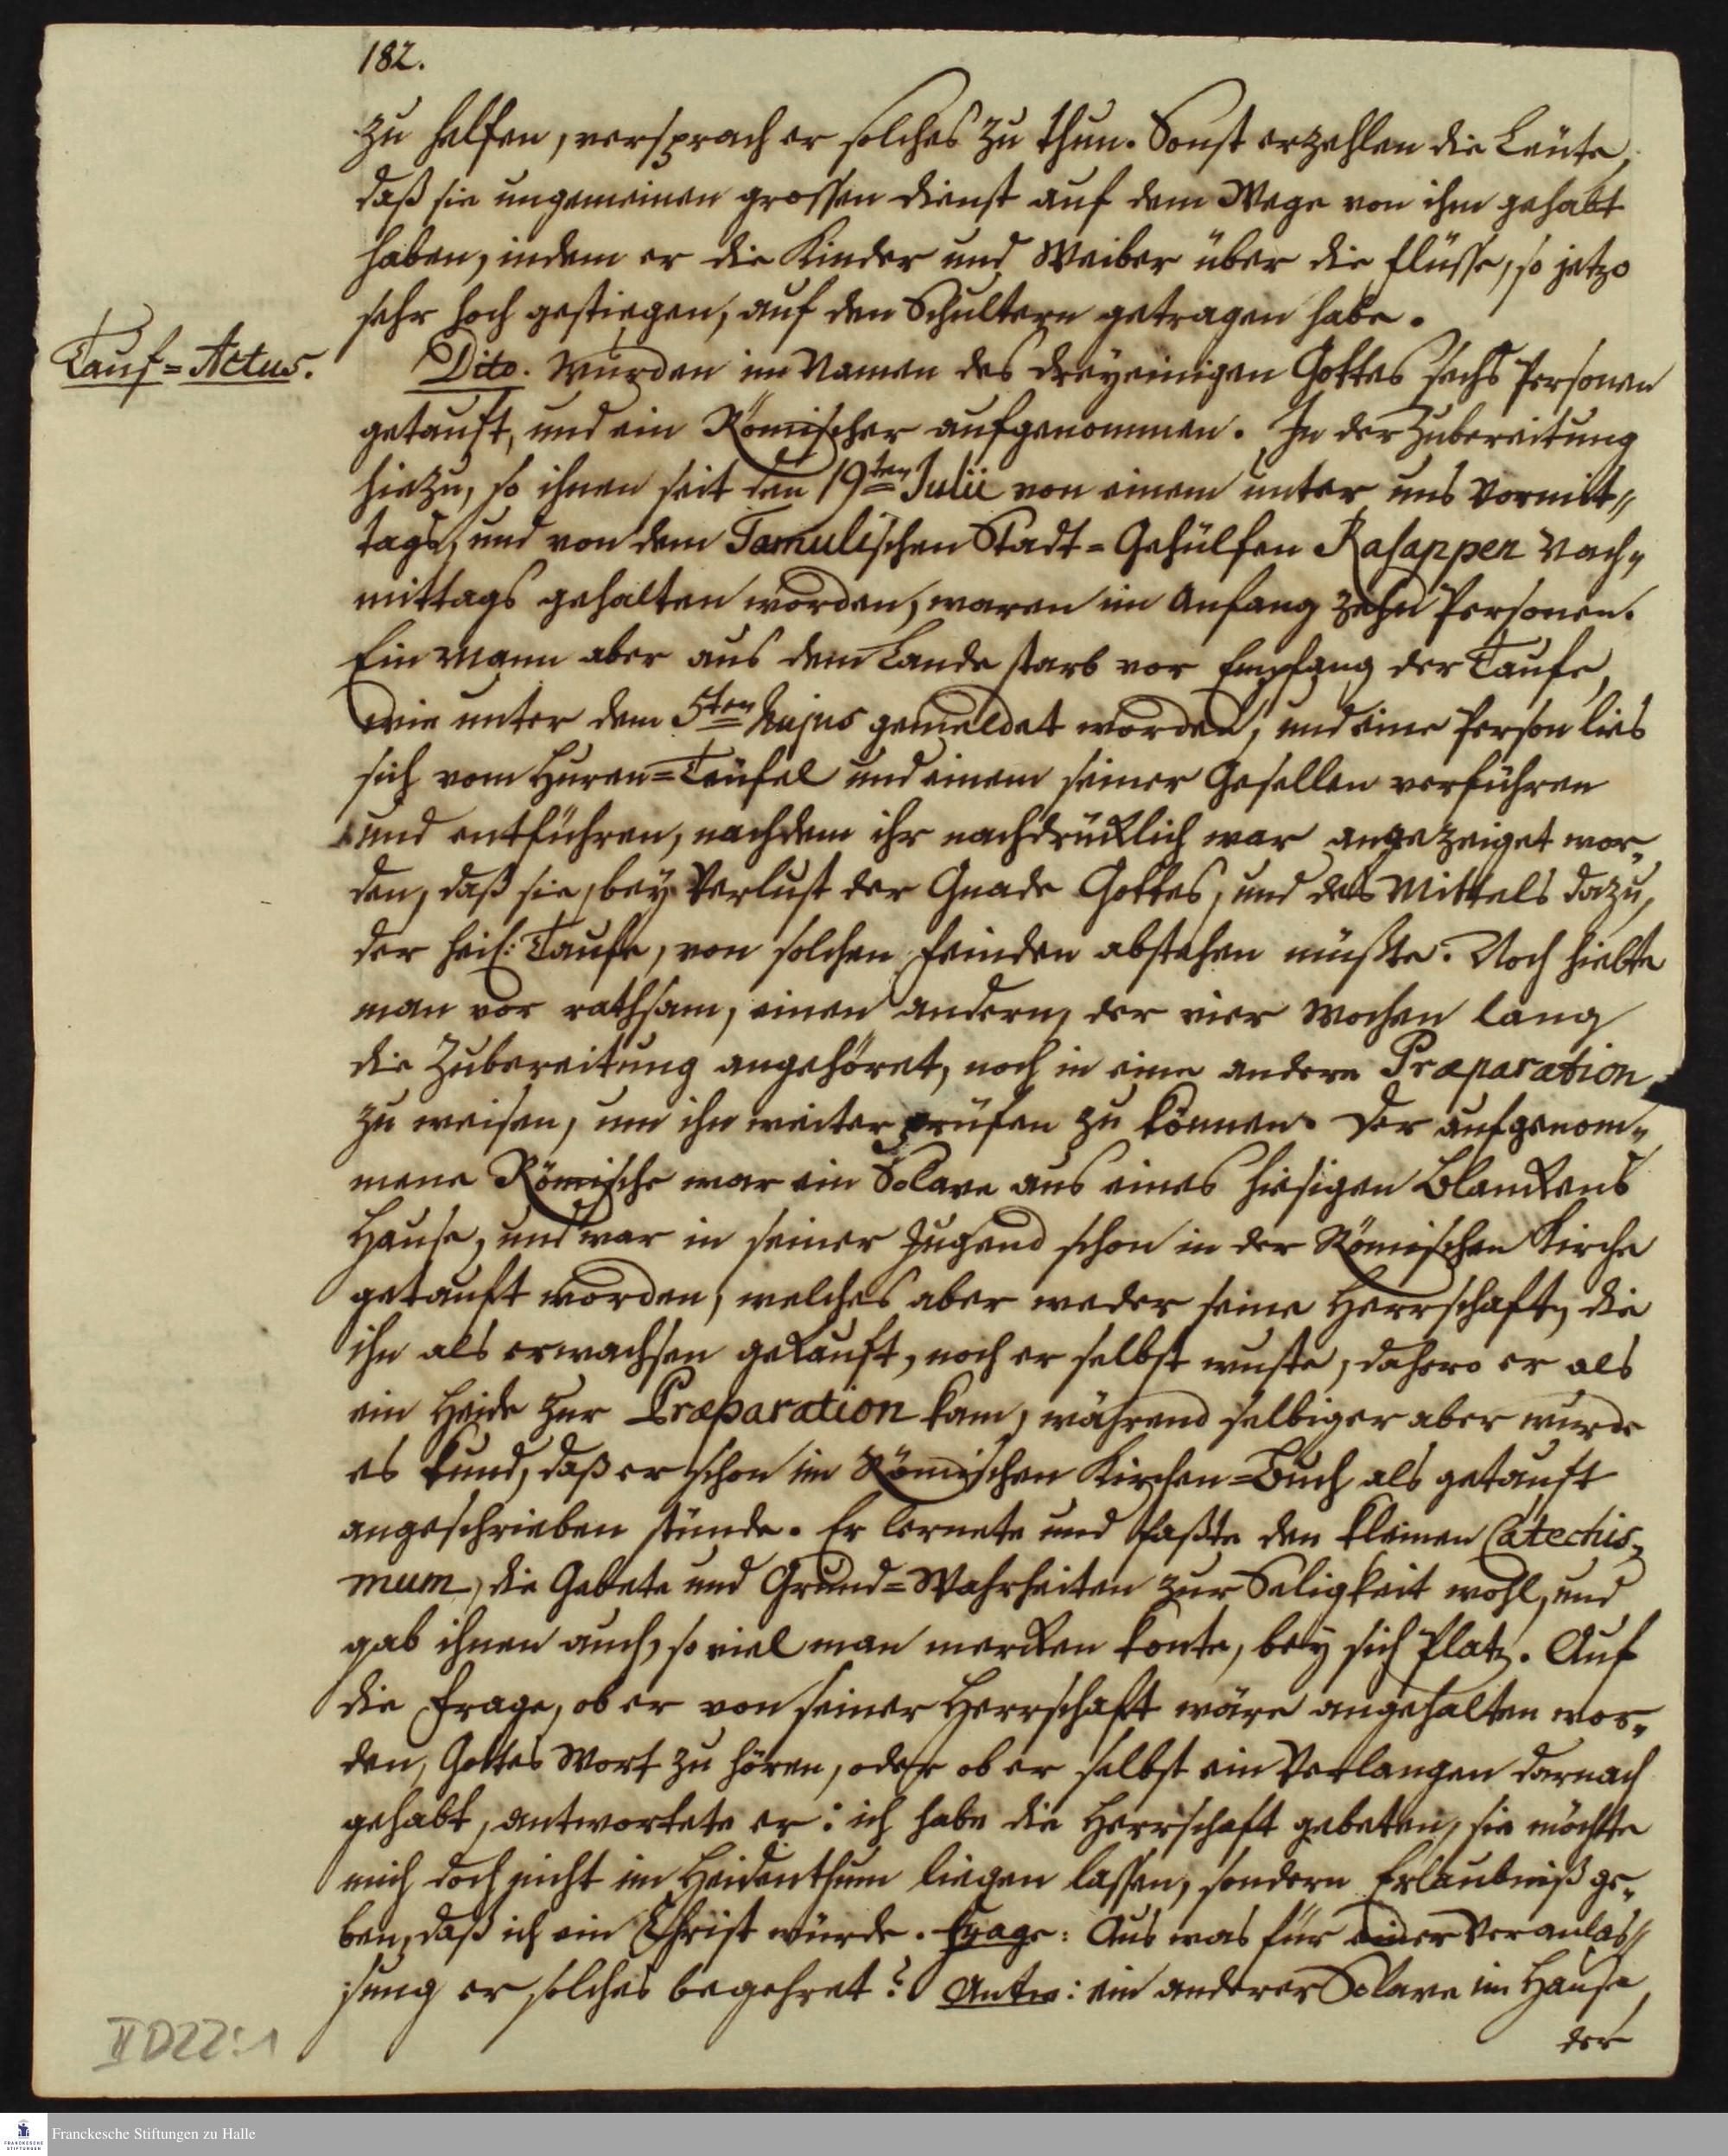 182.
zu helfen, versprach er solches zu thun. Sonst erzehlen die Leüte,
daß sie ungemeinen grossen dienst auf dem Wege von ihm gehabt
haben, indem er die Kinder und Weiber über die flüsse, so jetzo
sehr hoch gestiegen, auf den Schultern getragen habe.
Tauf=Actus.
Dito. Wurden im Namen des dreyeinigen Gottes sechs Personen
getauft, und ein Römischer aufgenommen. In der Zubereitung
hiezu, so ihnen seit den 19ten Julii von einem unter uns Vormit„
tags, und von dem Tamulischen Stadt=Gehülfen Rasappen Nach„
mittags gehalten worden, waren im Anfang zehn Personen.
Ein Mann aber aus dem Lande starb vor Empfang der Taufe,
wie unter dem 5ten hujus gemeldet worden, und eine Person lies
sich vom Huren=Teüfel und einem seiner Gesellen verführen
und entführen, nachdem ihr nachdrücklich war angezeiget wor„
den, daß sie, bey Verlust der Gnade Gottes, und des Mittels dazu,
der heil: Taufe, von solchen feinden abstehen müßte. Noch hielte
man vor rathsam, einen andern, der vier Wochen lang
die Zubereitung angehöret, noch in eine andere Præparation
zu weisen, um ihn weiter prüfen zu können. Der aufgenom„
mene Römische war ein Sclave aus eines hiesigen Blanckens
Hause, und war in seiner Jugend schon in der Römischen Kirche
getauft worden, welches aber weder seine Herrschaft, die
ihn als erwachsen gekauft, noch er selbst wuste, dahero er als
ein Heide zur Præparation kam, während selbiger aber wurde
es kund, daß er schon im Römischen Kirchen=Buch als getauft
angeschrieben stünde. Er lernete und faßte den kleinen Catechis„
mum, die Gebete und Grund=Wahrheiten zur Seligkeit wohl, und
gab ihnen auch, so viel man mercken konte, bey sich Platz. Auf
die Frage, ob er von seiner Herrschaft wäre angehalten wor„
den, Gottes Wort zu hören, oder ob er selbst ein Verlangen darnach
gehabt, antwortete er: ich habe die Herrschaft gebeten, sie möchte
mich doch nicht im Heidenthum liegen lassen, sondern Erlaubniß ge„
ben, daß ich ein Christ würde. Frage: Aus was für einer Veranlas„
sung er solches begehret? Antw: ein anderer Sclave im Hause,
der
II D22:1
Franckesche Stiftungen zu Halle
FRANCKESCHE
STIFTUNGEN